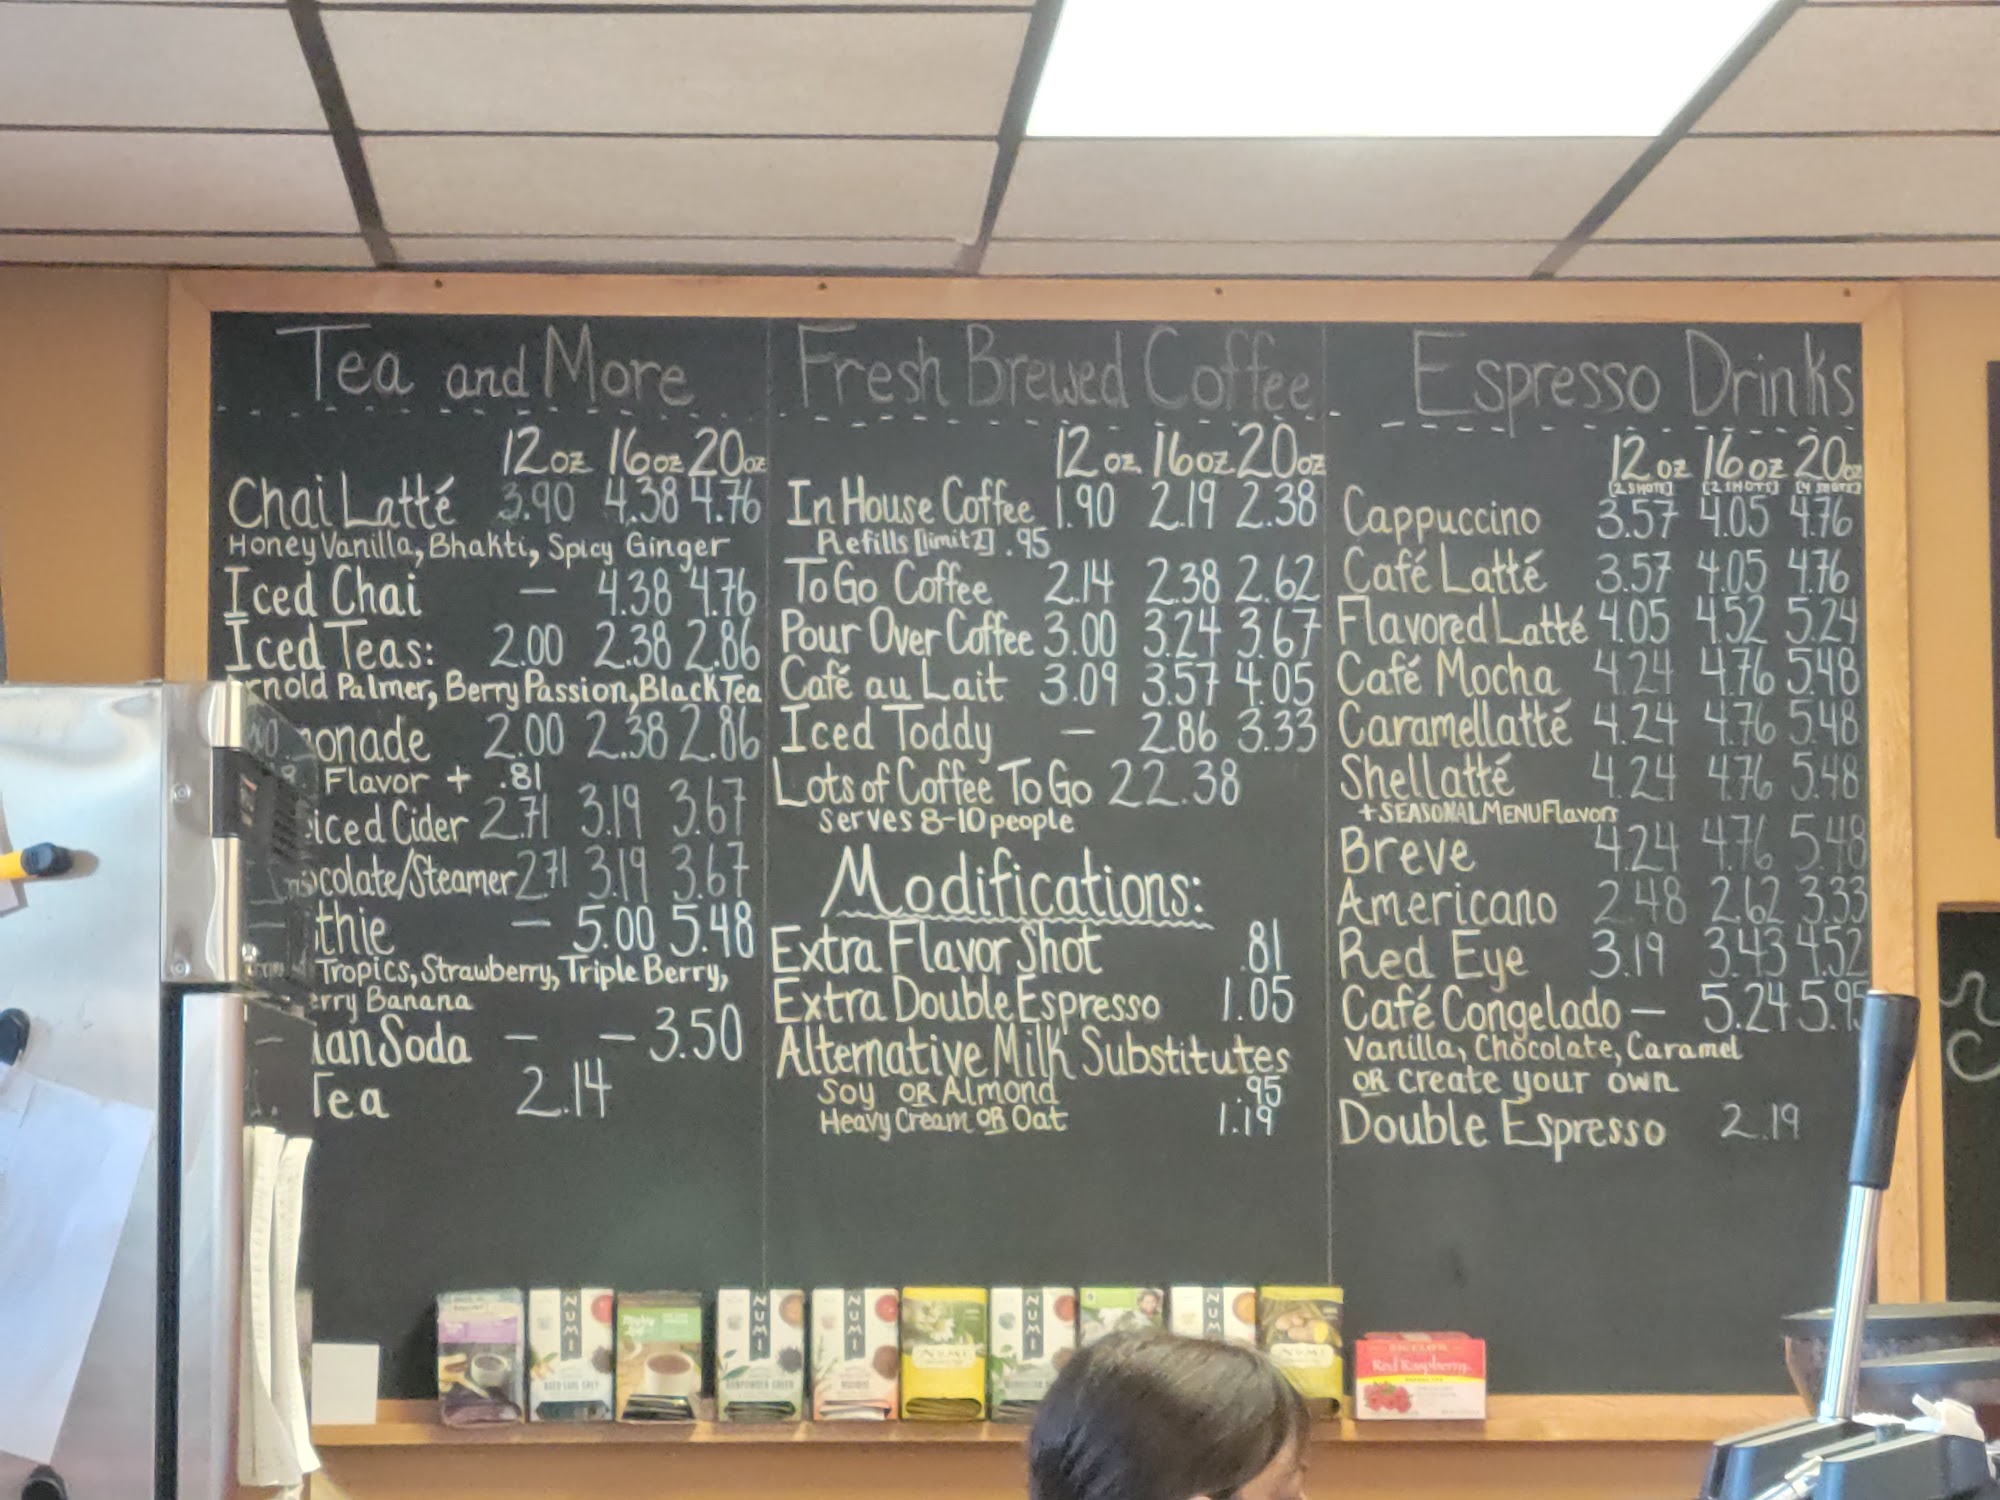 Tea and More
12 oz 16 oz 20 oz
Chai Latté 3.90 4.38 4.76
Honey Vanilla, Bhakti, Spicy Ginger
Iced Chai — 4.38 4.76
Iced Teas: 2.00 2.38 2.86
rnold Palmer, Berry Passion, Black Tea
onade 2.00 2.38 2.86
Flavor + .81
iced Cider 2.71 3.19 3.67
colate/Steamer 2.71 3.19 3.67
thie — 5.00 5.48
Tropics, Strawberry, Triple Berry,
erry Banana
ian Soda — — 3.50
Tea 2.14
Fresh Brewed Coffee
12 oz 16 oz 20 oz
In House Coffee 1.90 2.19 2.38
Refills [limit 2] .95
To Go Coffee 2.14 2.38 2.62
Pour Over Coffee 3.00 3.24 3.67
Café au Lait 3.09 3.57 4.05
Iced Toddy — 2.86 3.33
Lots of Coffee To Go 22.38
serves 8-10 people
Modifications:
Extra Flavor Shot .81
Extra Double Espresso 1.05
Alternative Milk Substitutes
Soy OR Almond .95
Heavy Cream OR Oat 1.19
Espresso Drinks
12 oz 16 oz 20 oz
[2 SHOTS] [2 SHOTS] [4 SHOTS]
Cappuccino 3.57 4.05 4.76
Café Latté 3.57 4.05 4.76
Flavored Latté 4.05 4.52 5.24
Café Mocha 4.24 4.76 5.48
Caramellatté 4.24 4.76 5.48
Shellatté 4.24 4.76 5.48
+ SEASONAL MENU Flavors
Breve 4.24 4.76 5.48
Americano 2.48 2.62 3.33
Red Eye 3.19 3.43 4.52
Café Congelado — 5.24 5.95
Vanilla, Chocolate, Caramel
OR create your own
Double Espresso 2.19
NUMI
NUMI
NUMI
NUMI
NUMI
NUMI
NUMI
Red Raspberry